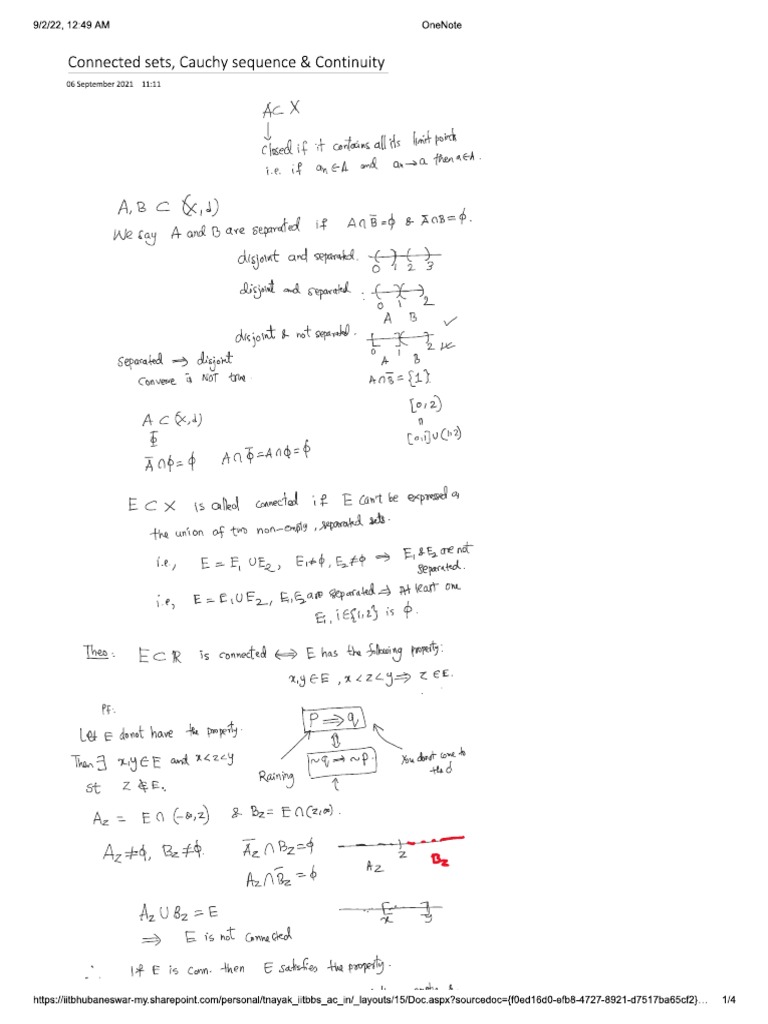 9/2/22, 12:49 AM OneNote
Connected sets, Cauchy sequence & Continuity
06 September 2021 11:11
A ⊂ X
↓
closed if it contains all its limit points
i.e. if aₙ ∈ A and aₙ → a then a ∈ A.
A, B ⊂ (X, d)
We say A and B are separated if A ∩ B̄ = ϕ & Ā ∩ B = ϕ.
disjoint and separated. 0 1 2 3
disjoint and separated : 0 1 2
A B
disjoint & not separated. 0 1 2
A B
Separated → disjoint
Converse is NOT true.
A ∩ B̄ = {1}
[0, 2)
[0,1] ∪ (1,2)
A ⊂ (X, d)
Φ
Ā ∩ ϕ = ϕ A ∩ ϕ̄ = A ∩ ϕ = ϕ
E ⊂ X is called connected if E can't be expressed as
the union of two non-empty, separated sets.
i.e., E = E₁ ∪ E₂, E₁ ≠ ϕ, E₂ ≠ ϕ ⇒ E₁ & E₂ are not
separated.
i.e, E = E₁ ∪ E₂, E₁, E₂ are separated ⇒ At least one
Eᵢ, i ∈ {1,2} is ϕ.
Theo: E ⊂ ℝ is connected ⟺ E has the following property:
x, y ∈ E, x < z < y ⇒ z ∈ E.
Pf:
Let E donot have the property.
Then ∃ x, y ∈ E and x < z < y
st z ∉ E.
P ⇒ q
⇕
~q → ~p
Raining
You donot come to
A_z = E ∩ (-∞, z) & B_z = E ∩ (z, ∞).
A_z ≠ ϕ, B_z ≠ ϕ. Ā_z ∩ B_z = ϕ
A_z ∩ B̄_z = ϕ
z
A_z B_z
A_z ∪ B_z = E
x y
⇒ E is not connected
∴ If E is conn. then E satisfies the property.
https://iitbhubaneswar-my.sharepoint.com/personal/tnayak_iitbbs_ac_in/_layouts/15/Doc.aspx?sourcedoc={f0ed16d0-efb8-4727-8921-d7517ba65cf2}… 1/4